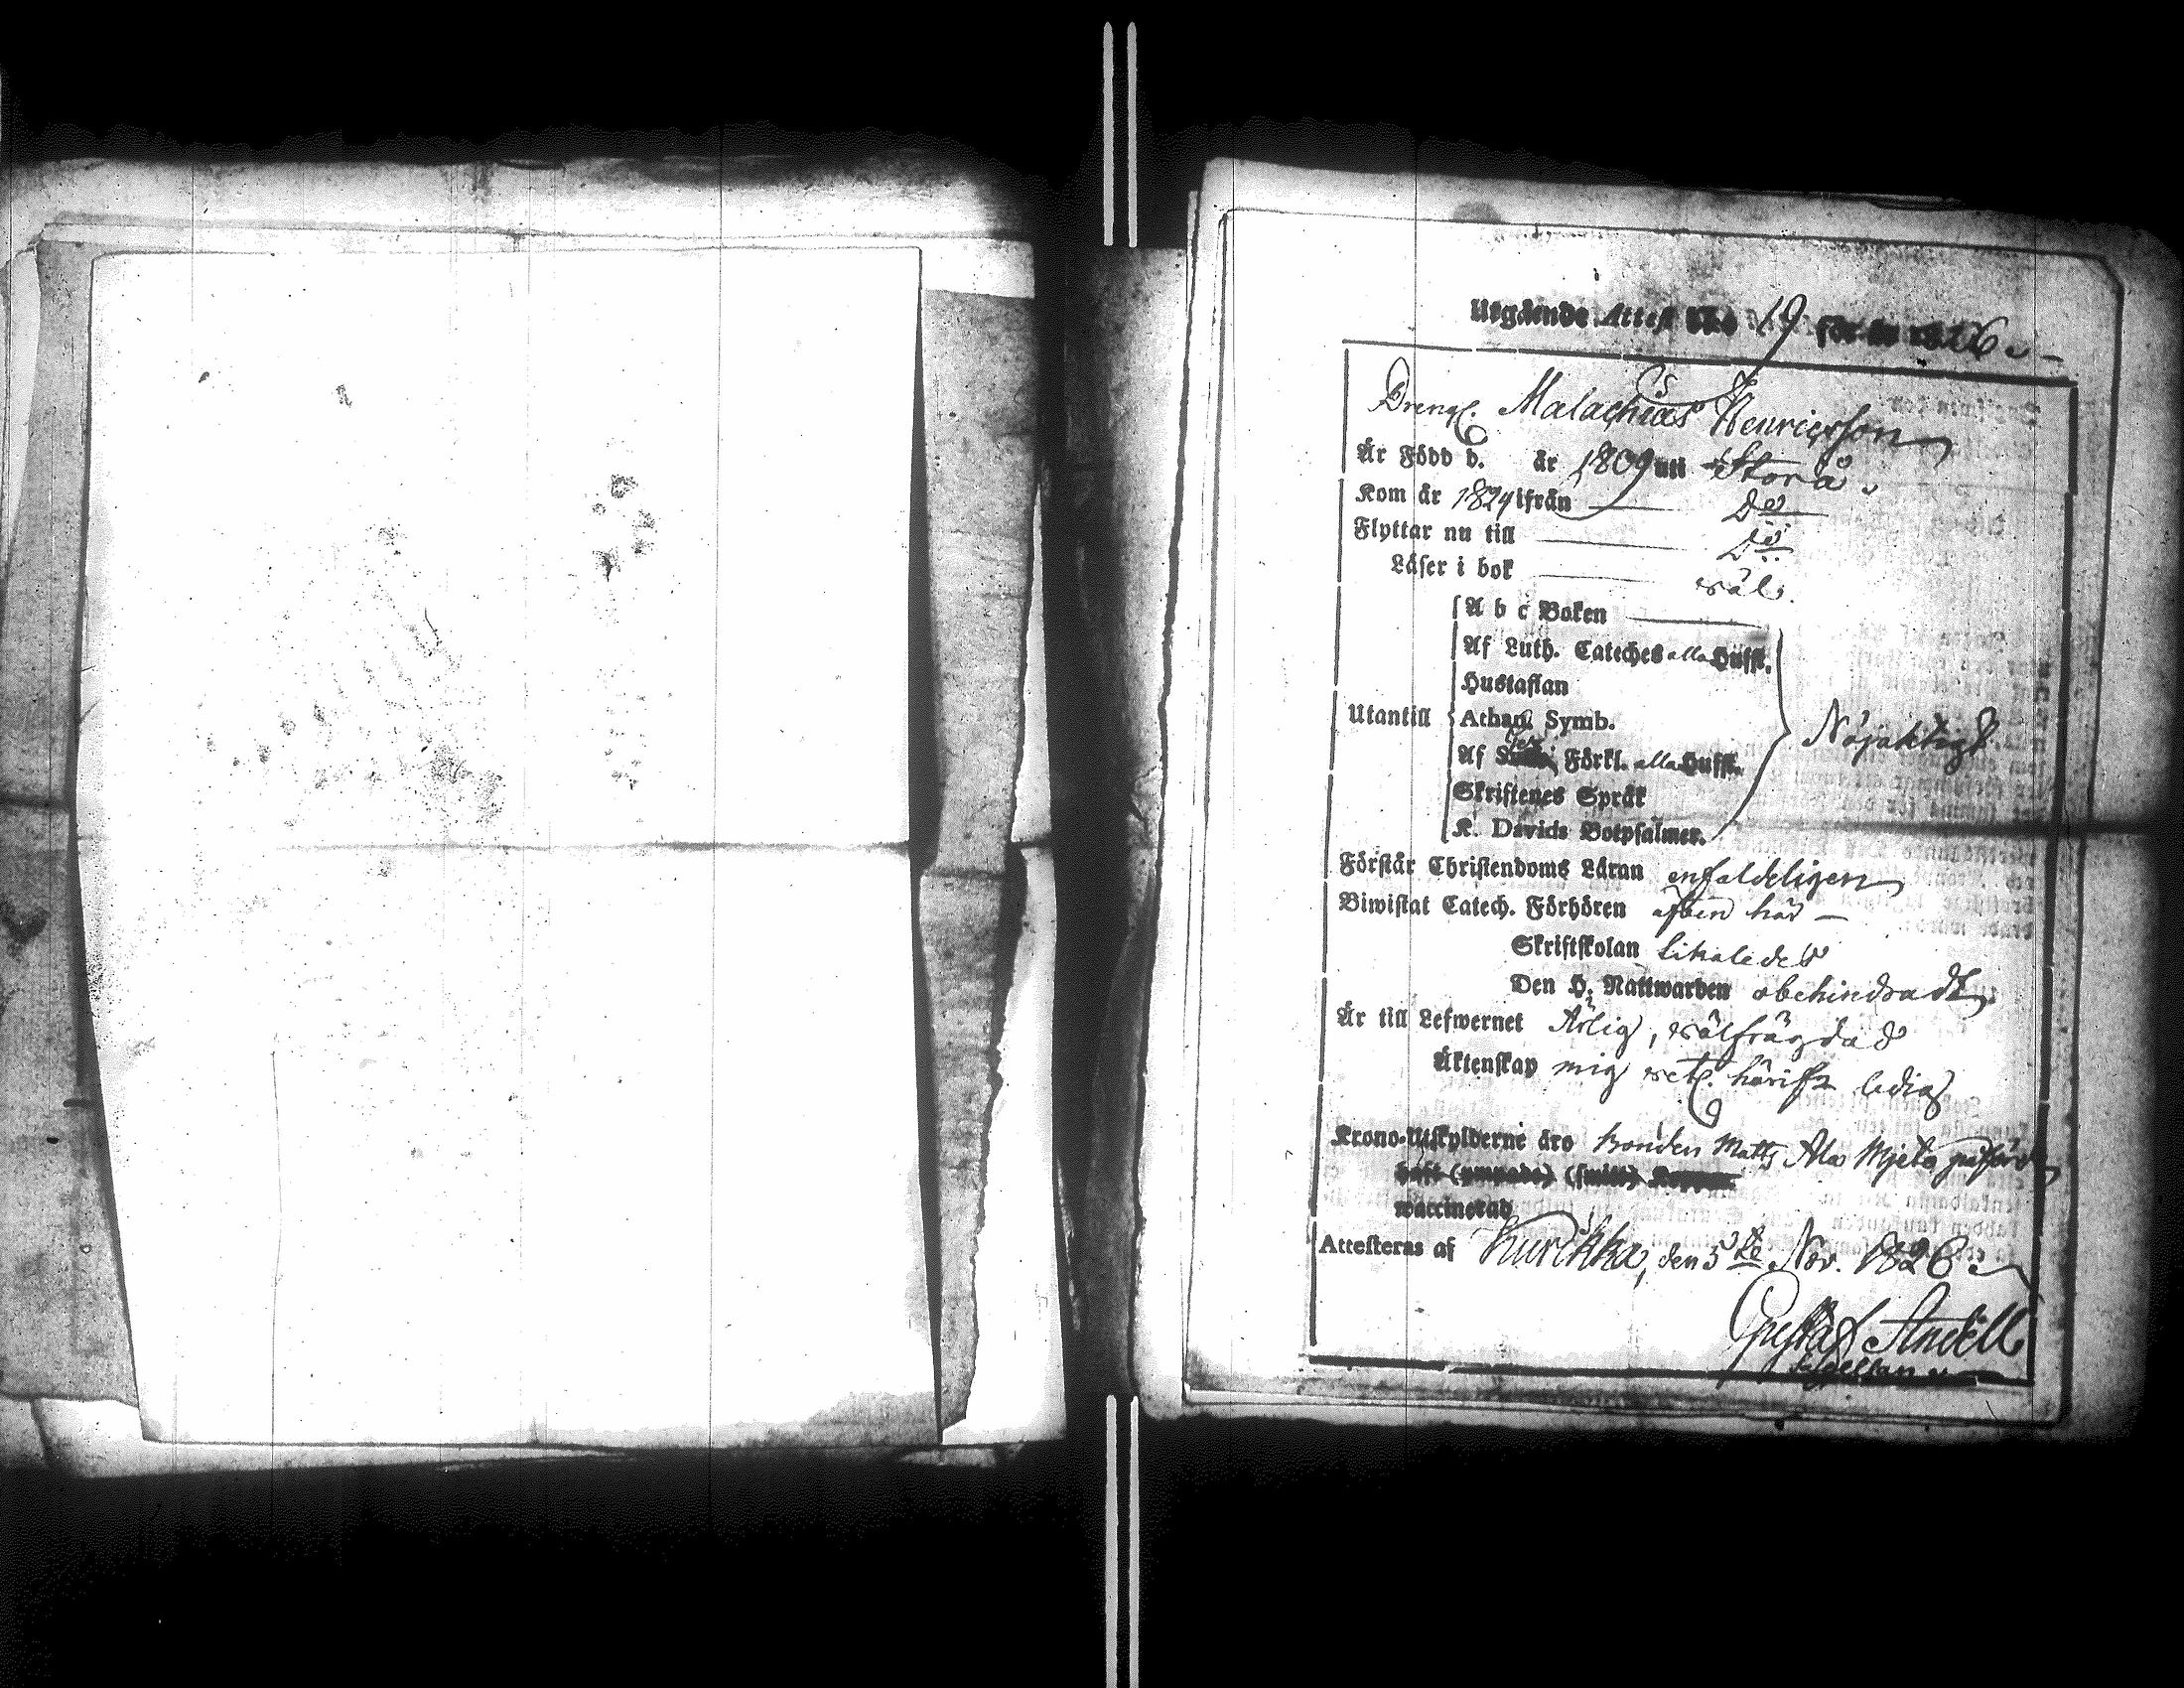 Utgående Attest N:o 19 för år 1826.
Dreng. Malachias Henricsson
Är Född d. år 1809 uti Storå.
Kom år 1824 ifrån D:o
Flyttar nu till D:o
Läser i bok wäl.
A b c Boken
Af Luth. Cateches alla Hufst.
Hustaflan
Utantill Athan. Symb.
Af Förkl. alla Hufst.
Skriftenes Språk
K. Davids Botpsalmer.
Nöjaktigt
Förstår Christendoms Läran enfaldeligen
Biwistat Catech. Förhören åfven här
Skriftskolan likaledes
Den H. Nattwarden obehindradt
Är till Lefwernet Ärlig, wälfrägdad
Äktenskap mig wetl. härifr. ledig
Krono-Utskylderne äro bonden Matts Ala Mjeto påförde
haft (ympade) (smitt) Koppor.
waccinerad
Attesteras af Kurikka, den 3:de Nov. 1826.
Gustaf